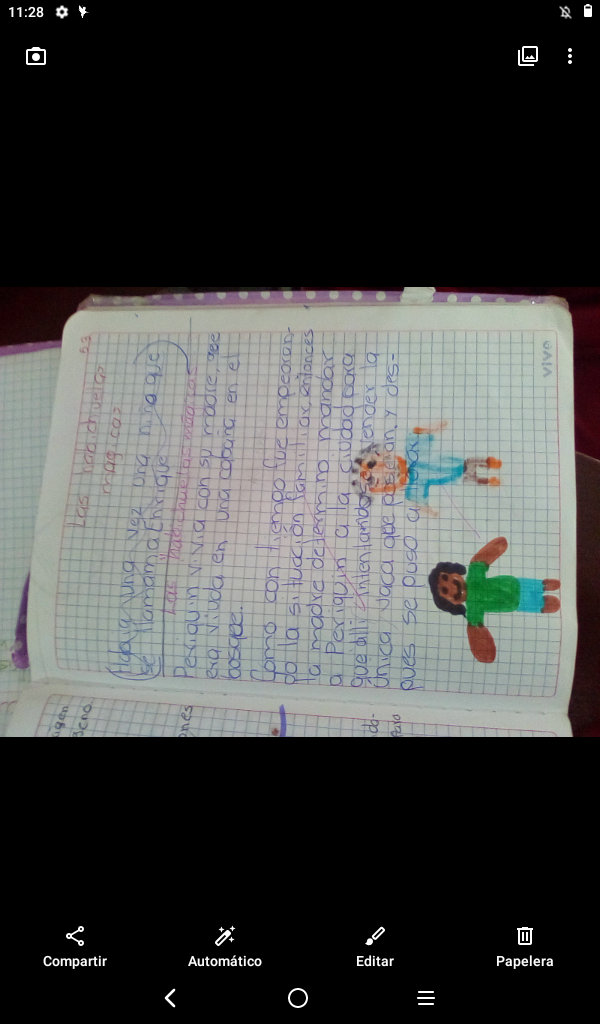 11:28
53
Las habichuelas
mágicas
Había una vez una niña que
se llamama Enrique
Las habichuelas mágicas
Periquin vivia con su madre, que
era viuda en una cabaña en el
bosque.
Como con tiempo fue empeoran-
do la situación familiar, entonces
la madre determino mandar
a Periquin a la ciudad para
que alli intentando vender la
única vaca que poseian. y des-
pues se puso a llorar
VIVO
Compartir
Automático
Editar
Papelera